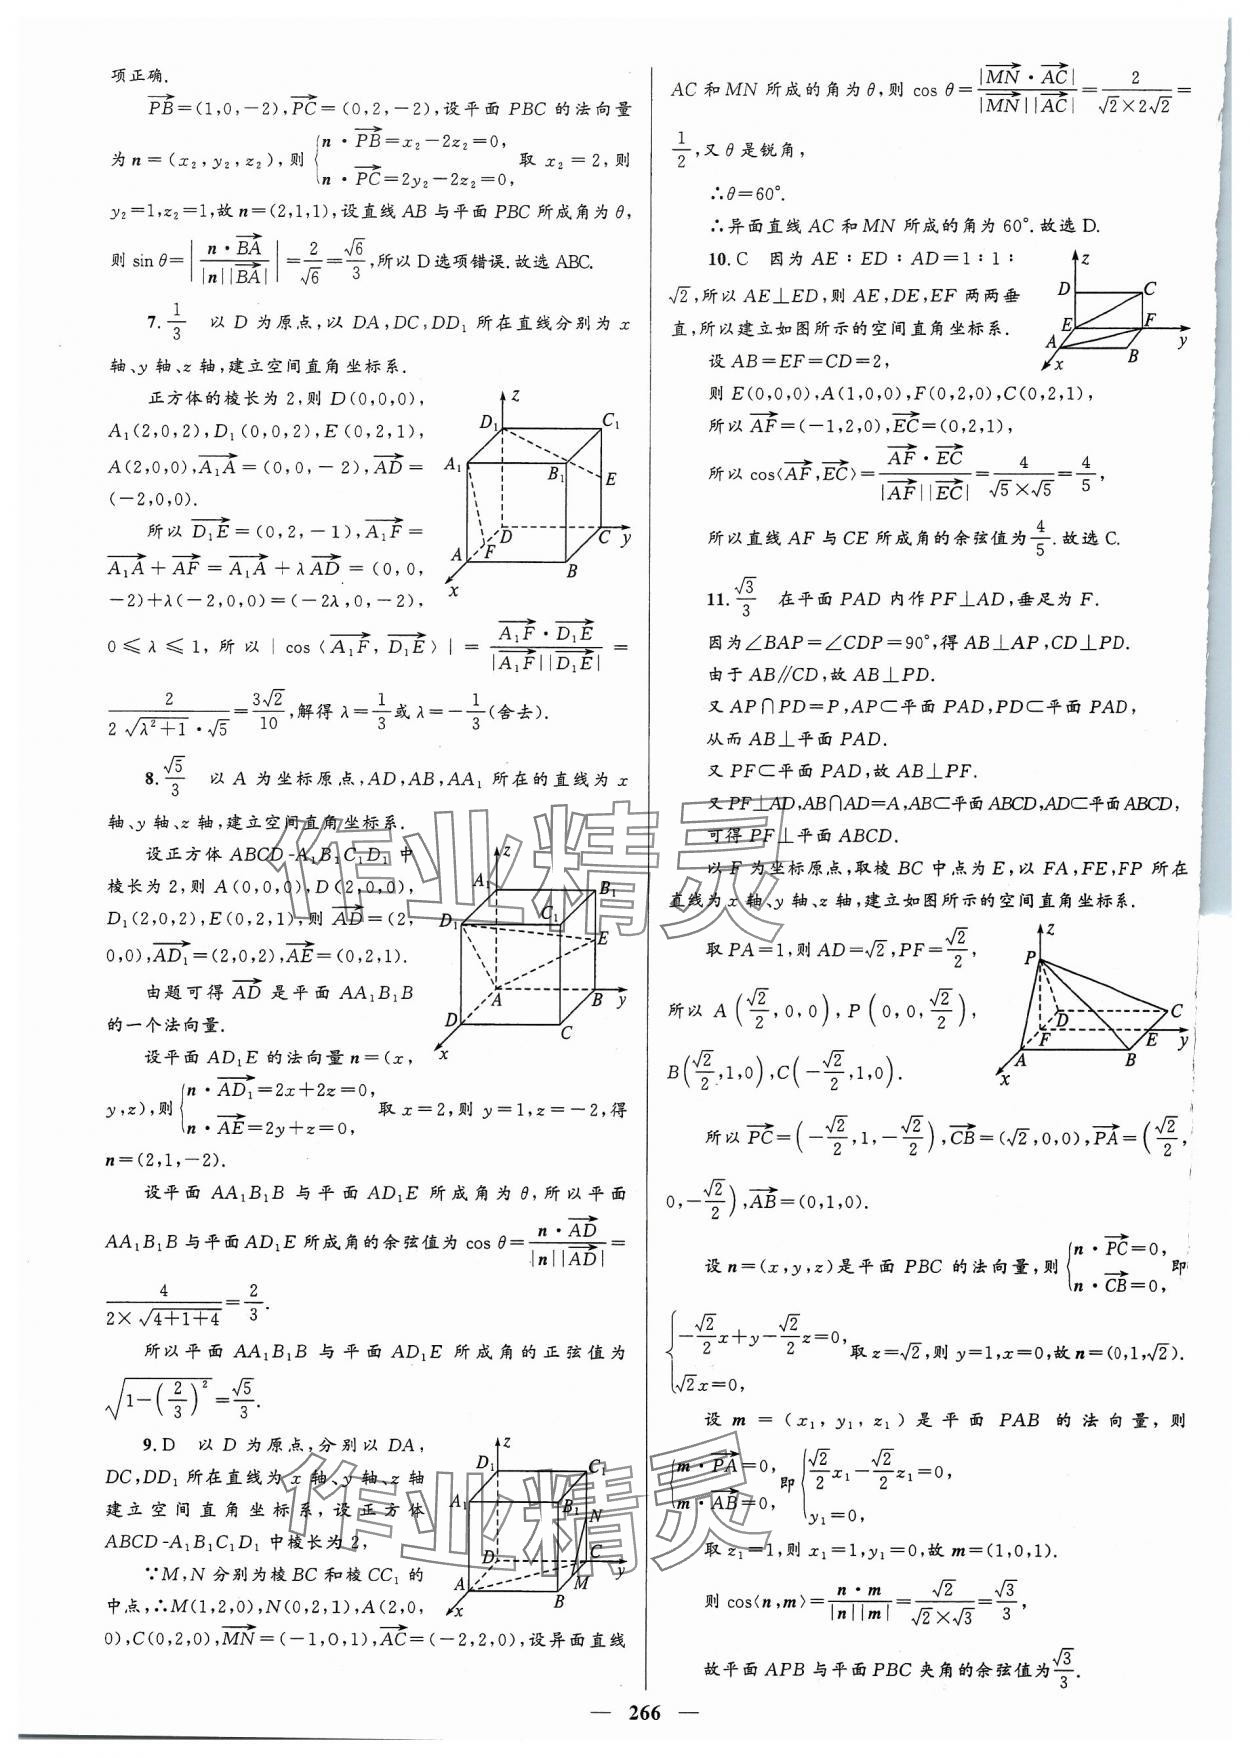 项正确.
$\overrightarrow{PB}$=(1,0,-2),$\overrightarrow{PC}$=(0,2,-2),设平面 PBC 的法向量
为 n=(x₂,y₂,z₂),则 $\begin{cases} n·\overrightarrow{PB}=x_2-2z_2=0, \\ n·\overrightarrow{PC}=2y_2-2z_2=0, \end{cases}$ 取 x₂=2,则
y₂=1,z₂=1,故 n=(2,1,1),设直线 AB 与平面 PBC 所成角为 θ,
则 sin θ=$\left|\frac{n·\overrightarrow{BA}}{|n||\overrightarrow{BA}|}\right|=\frac{2}{\sqrt{6}}=\frac{\sqrt{6}}{3}$,所以 D 选项错误.故选 ABC.
7.$\frac{1}{3}$ 以 D 为原点,以 DA,DC,DD₁ 所在直线分别为 x
轴、y 轴、z 轴,建立空间直角坐标系.
正方体的棱长为 2,则 D(0,0,0),
A₁(2,0,2),D₁(0,0,2),E(0,2,1),
A(2,0,0),$\overrightarrow{A_1A}$=(0,0,-2),$\overrightarrow{AD}$=
(-2,0,0).
所以 $\overrightarrow{D_1E}$=(0,2,-1),$\overrightarrow{A_1F}$=
$\overrightarrow{A_1A}+\overrightarrow{AF}=\overrightarrow{A_1A}+λ\overrightarrow{AD}$=(0,0,
-2)+λ(-2,0,0)=(-2λ,0,-2),
0≤λ≤1,所以|cos⟨$\overrightarrow{A_1F}$,$\overrightarrow{D_1E}$⟩|=$\frac{\overrightarrow{A_1F}·\overrightarrow{D_1E}}{|\overrightarrow{A_1F}||\overrightarrow{D_1E}|}$=
$\frac{2}{2\sqrt{λ^2+1}·\sqrt{5}}=\frac{3\sqrt{2}}{10}$,解得 λ=$\frac{1}{3}$或 λ=-$\frac{1}{3}$(舍去).
z
D₁
C₁
A₁
B₁
E
D
C
y
A
F
B
x
8.$\frac{\sqrt{5}}{3}$ 以 A 为坐标原点,AD,AB,AA₁ 所在的直线为 x
轴、y 轴、z 轴,建立空间直角坐标系.
设正方体 ABCD-A₁B₁C₁D₁ 中
棱长为 2,则 A(0,0,0),D(2,0,0),
D₁(2,0,2),E(0,2,1),则 $\overrightarrow{AD}$=(2,
0,0),$\overrightarrow{AD_1}$=(2,0,2),$\overrightarrow{AE}$=(0,2,1).
由题可得 $\overrightarrow{AD}$ 是平面 AA₁B₁B
的一个法向量.
设平面 AD₁E 的法向量 n=(x,
y,z),则$\begin{cases} n·\overrightarrow{AD_1}=2x+2z=0, \\ n·\overrightarrow{AE}=2y+z=0, \end{cases}$ 取 x=2,则 y=1,z=-2,得
n=(2,1,-2).
z
A₁
B₁
D₁
C₁
E
A
B
y
D
C
x
设平面 AA₁B₁B 与平面 AD₁E 所成角为 θ,所以平面
AA₁B₁B 与平面 AD₁E 所成角的余弦值为 cos θ=$\frac{n·\overrightarrow{AD}}{|n||\overrightarrow{AD}|}$=
$\frac{4}{2×\sqrt{4+1+4}}=\frac{2}{3}$.
所以平面 AA₁B₁B 与平面 AD₁E 所成角的正弦值为
$\sqrt{1-\left(\frac{2}{3}\right)^2}=\frac{\sqrt{5}}{3}$.
9.D 以 D 为原点,分别以 DA,
DC,DD₁ 所在直线为 x 轴、y 轴、z 轴
建立空间直角坐标系,设正方体
ABCD-A₁B₁C₁D₁ 中棱长为 2,
∵M,N 分别为棱 BC 和棱 CC₁ 的
中点,∴M(1,2,0),N(0,2,1),A(2,0,
0),C(0,2,0),$\overrightarrow{MN}$=(-1,0,1),$\overrightarrow{AC}$=(-2,2,0),设异面直线
z
D₁
C₁
A₁
B₁
N
D
C
y
A
M
B
x
AC 和 MN 所成的角为 θ,则 cos θ=$\frac{|\overrightarrow{MN}·\overrightarrow{AC}|}{|\overrightarrow{MN}||\overrightarrow{AC}|}=\frac{2}{\sqrt{2}×2\sqrt{2}}$=
$\frac{1}{2}$,又 θ 是锐角,
∴θ=60°.
∴异面直线 AC 和 MN 所成的角为 60°.故选 D.
10.C 因为 AE∶ED∶AD=1∶1∶
$\sqrt{2}$,所以 AE⊥ED,则 AE,DE,EF 两两垂
直,所以建立如图所示的空间直角坐标系.
设 AB=EF=CD=2,
则 E(0,0,0),A(1,0,0),F(0,2,0),C(0,2,1),
所以 $\overrightarrow{AF}$=(-1,2,0),$\overrightarrow{EC}$=(0,2,1),
所以 cos⟨$\overrightarrow{AF}$,$\overrightarrow{EC}$⟩=$\frac{\overrightarrow{AF}·\overrightarrow{EC}}{|\overrightarrow{AF}||\overrightarrow{EC}|}=\frac{4}{\sqrt{5}×\sqrt{5}}=\frac{4}{5}$,
所以直线 AF 与 CE 所成角的余弦值为$\frac{4}{5}$.故选 C.
z
D
C
E
F
y
A
B
x
11.$\frac{\sqrt{3}}{3}$ 在平面 PAD 内作 PF⊥AD,垂足为 F.
因为∠BAP=∠CDP=90°,得 AB⊥AP,CD⊥PD.
由于 AB∥CD,故 AB⊥PD.
又 AP∩PD=P,AP⊂平面 PAD,PD⊂平面 PAD,
从而 AB⊥平面 PAD.
又 PF⊂平面 PAD,故 AB⊥PF.
又 PF⊥AD,AB∩AD=A,AB⊂平面 ABCD,AD⊂平面 ABCD,
可得 PF⊥平面 ABCD.
以 F 为坐标原点,取棱 BC 中点为 E,以 FA,FE,FP 所在
直线为 x 轴、y 轴、z 轴,建立如图所示的空间直角坐标系.
取 PA=1,则 AD=$\sqrt{2}$,PF=$\frac{\sqrt{2}}{2}$,
所以 A$\left(\frac{\sqrt{2}}{2},0,0\right)$,P$\left(0,0,\frac{\sqrt{2}}{2}\right)$,
B$\left(\frac{\sqrt{2}}{2},1,0\right)$,C$\left(-\frac{\sqrt{2}}{2},1,0\right)$.
z
P
D
C
F
E
y
A
B
x
所以 $\overrightarrow{PC}=\left(-\frac{\sqrt{2}}{2},1,-\frac{\sqrt{2}}{2}\right)$,$\overrightarrow{CB}=(\sqrt{2},0,0)$,$\overrightarrow{PA}=\left(\frac{\sqrt{2}}{2}\right.$,
$\left.0,-\frac{\sqrt{2}}{2}\right)$,$\overrightarrow{AB}$=(0,1,0).
设 n=(x,y,z)是平面 PBC 的法向量,则$\begin{cases} n·\overrightarrow{PC}=0, \\ n·\overrightarrow{CB}=0, \end{cases}$ 即
$\begin{cases} -\frac{\sqrt{2}}{2}x+y-\frac{\sqrt{2}}{2}z=0, \\ \sqrt{2}x=0, \end{cases}$ 取 z=$\sqrt{2}$,则 y=1,x=0,故 n=(0,1,$\sqrt{2}$).
设 m=(x₁,y₁,z₁)是平面 PAB 的法向量,则
$\begin{cases} m·\overrightarrow{PA}=0, \\ m·\overrightarrow{AB}=0, \end{cases}$ 即$\begin{cases} \frac{\sqrt{2}}{2}x_1-\frac{\sqrt{2}}{2}z_1=0, \\ y_1=0, \end{cases}$
取 z₁=1,则 x₁=1,y₁=0,故 m=(1,0,1).
则 cos⟨n,m⟩=$\frac{n·m}{|n||m|}=\frac{\sqrt{2}}{\sqrt{2}×\sqrt{3}}=\frac{\sqrt{3}}{3}$,
故平面 APB 与平面 PBC 夹角的余弦值为$\frac{\sqrt{3}}{3}$.
作业精灵
作业精灵
— 266 —